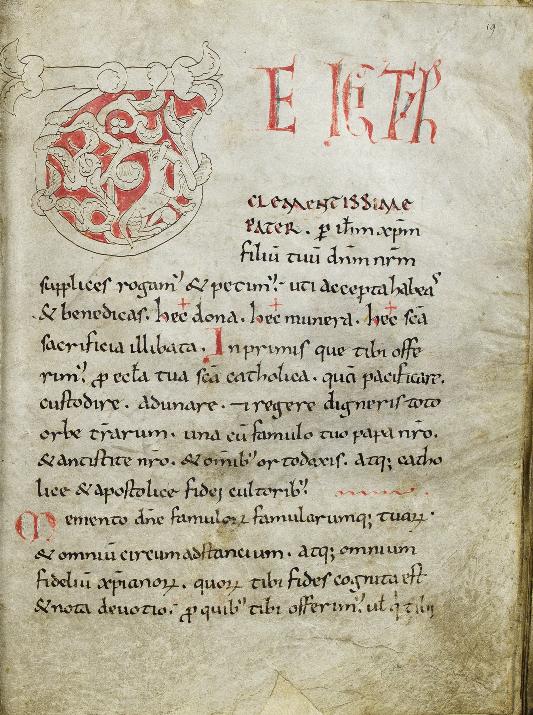 19
TE IGITVR
CLEMENTISSIME
PATER. p̱ ih̄m xp̄m
filiū tuū dn̄m nr̄m
supplices rogam᾽ & petim᾽: uti accepta habeas
& benedicas. hęc dona. hęc munera. hęc sc̄a
sacrificia illibata. In primis que tibi offe
rim᾽ p̱ ecl̄a tua sc̄a catholica. quā pacificare.
custodire. adunare. ⁊ regere digneris toto
orbe tr̄arum. una cū famulo tuo papa nr̄o.
& antistite nr̄o. & om̄ib᾽ ortodoxis. atq; catho
lice & apostolice fidei cultorib᾽
Memento dn̄e famuloꝝ famularumq; tuaꝝ.
& omniū circum adstancium. atq; omnium
fideliū xp̄ianoꝝ. quoꝝ tibi fides cognita est
& nota devotio: p̱ quib᾽ tibi offerim᾽. ul̄ q̄ tibi